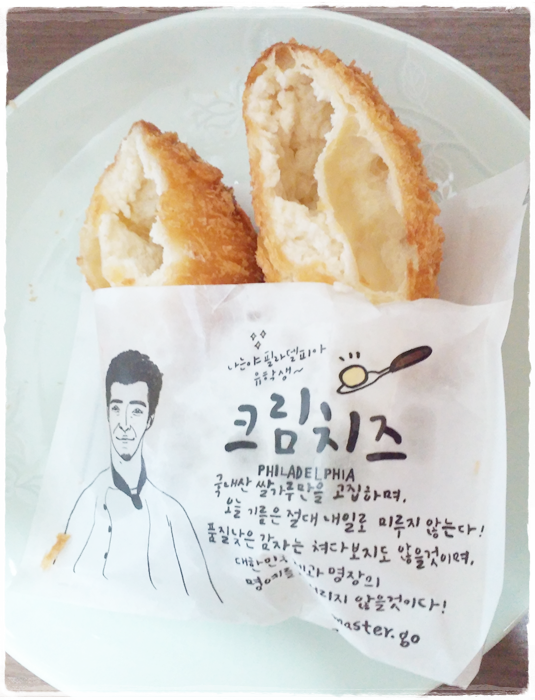 나는야 필라델피아
유학생~
크림치즈
PHILADELPHIA
국내산 쌀가루만을 고집하며,
오늘 기름은 절대 내일로 미루지 않는다!
품질낮은 감자는 쳐다보지도 않을것이며,
대한민 명장의
명예를 않을것이다!
master.go